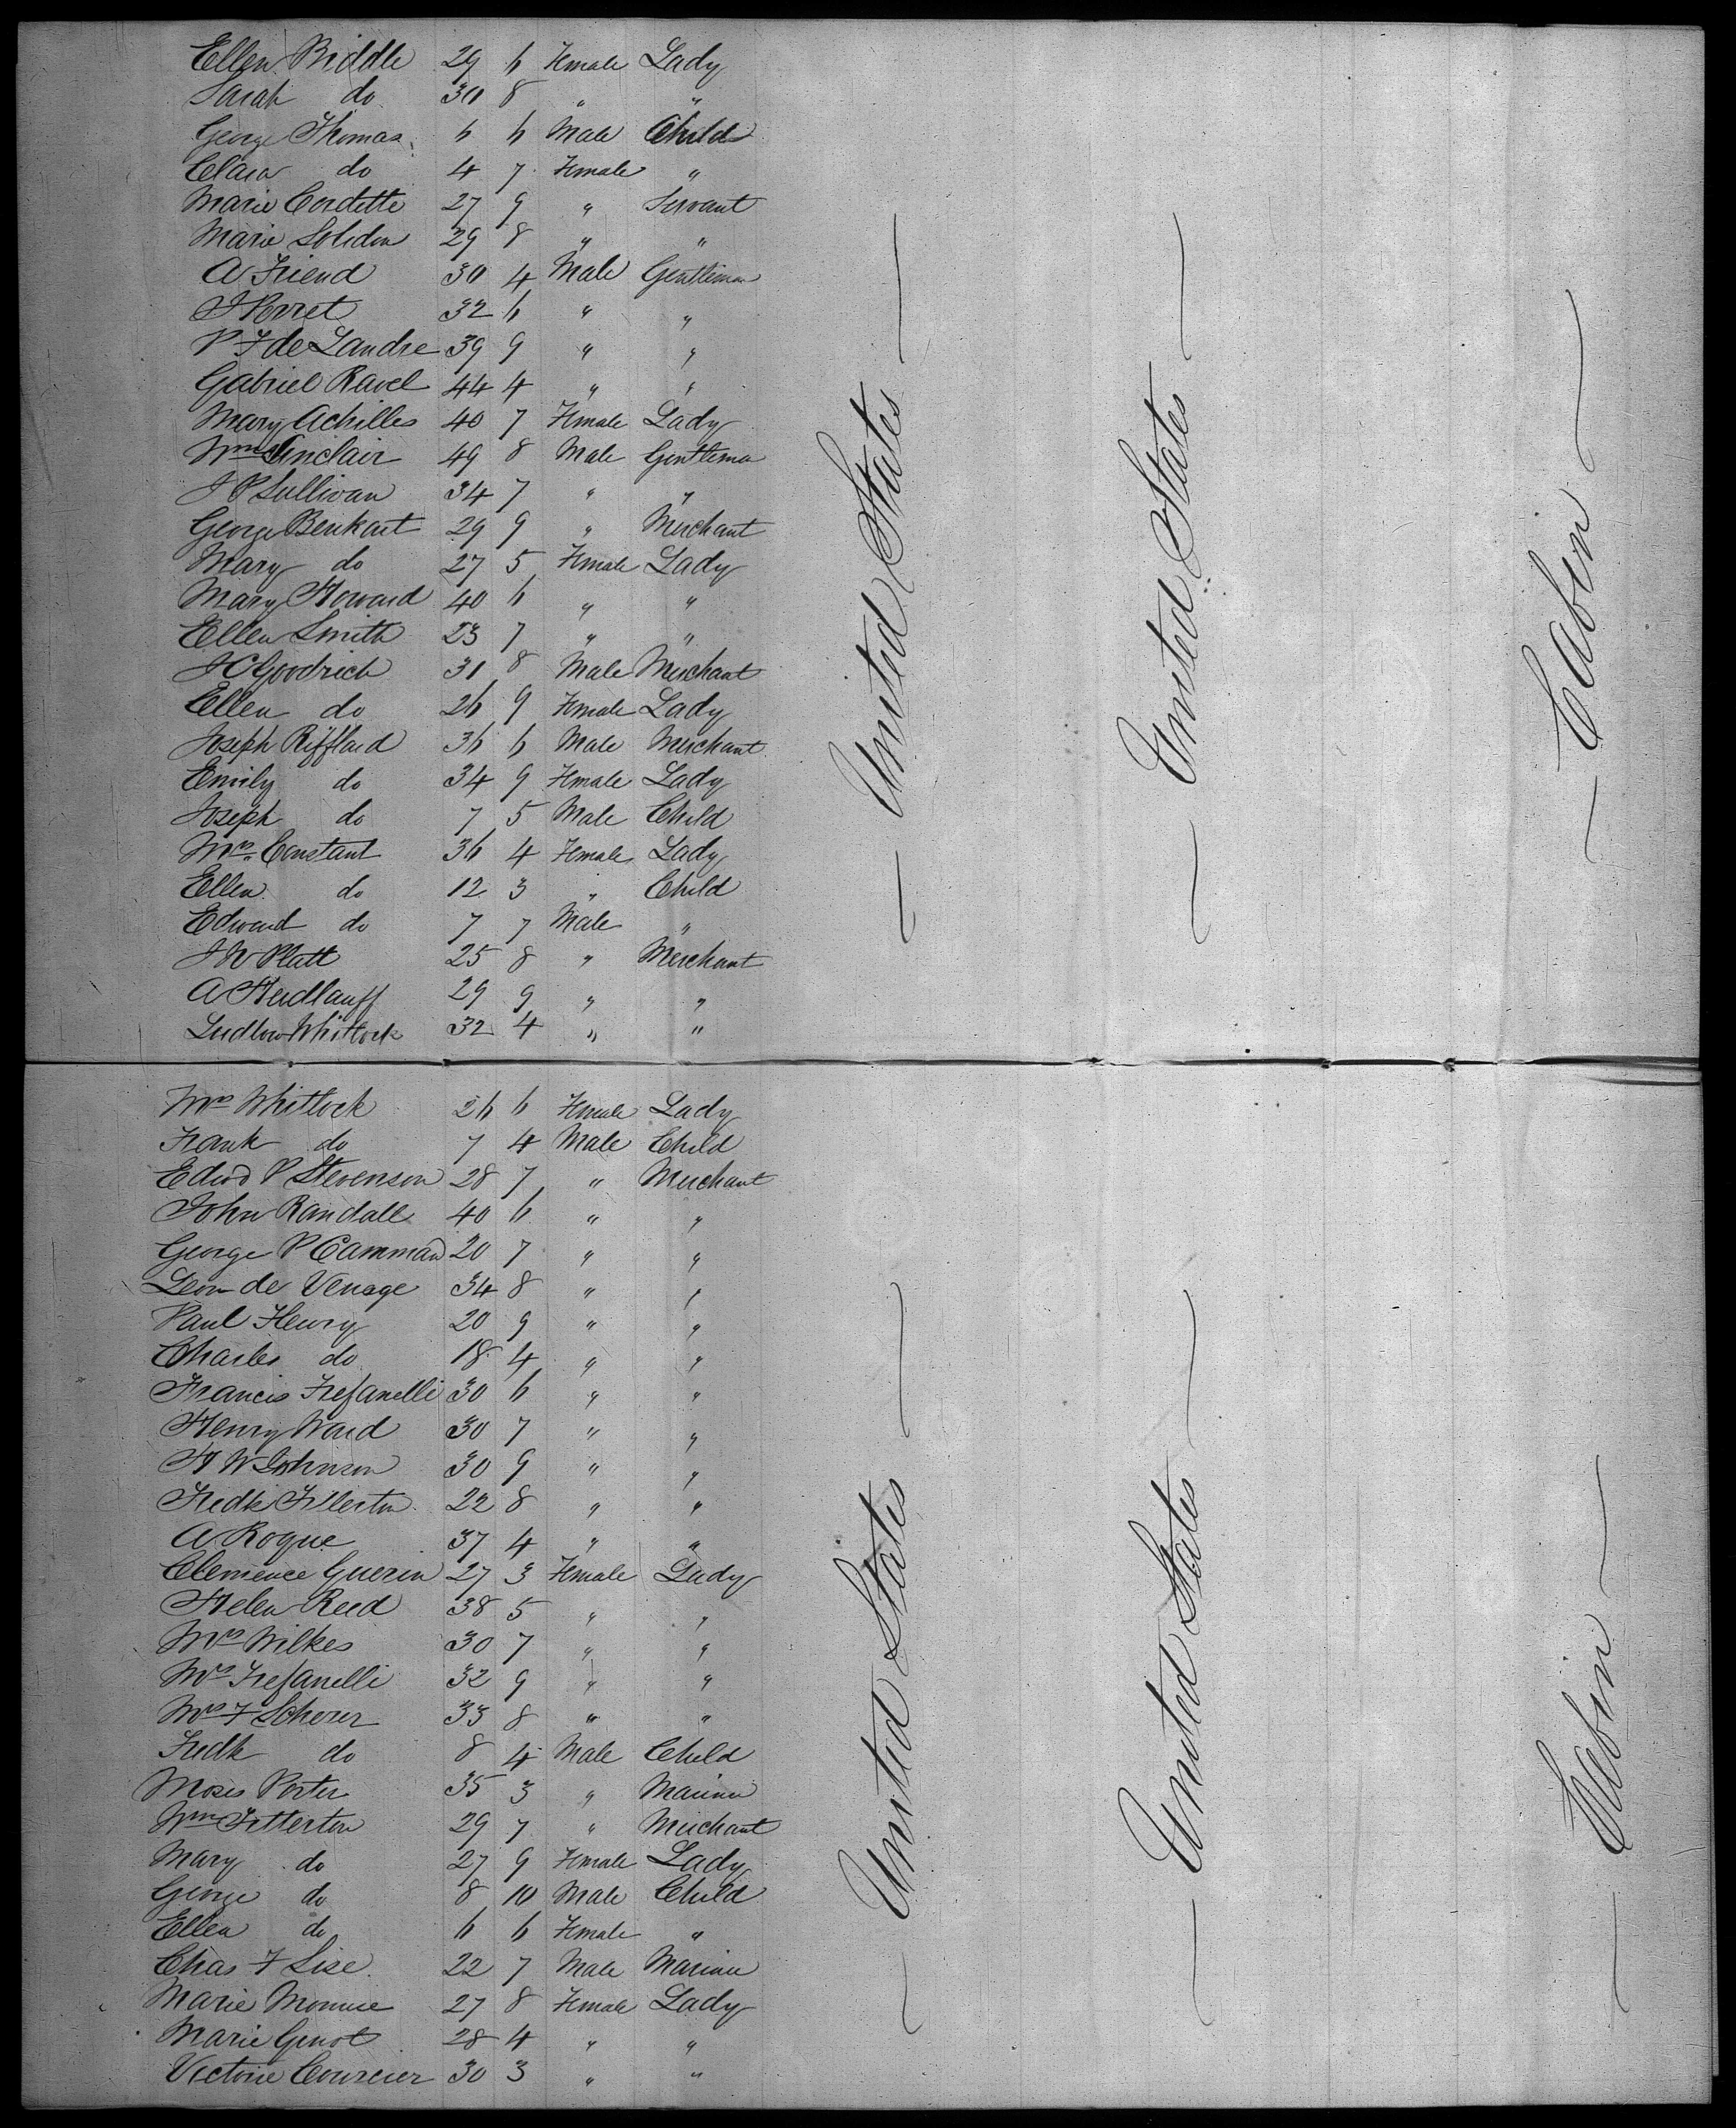 Ellen Biddle 29 6 Female Lady
Sarah do 30 8 " "
George Thomas 6 6 Male Child
Clara do 4 7 Female "
Marie Cordette 27 9 " Servant
Marie 29 8 " "
A Friend 30 4 Male Gentleman
J Perret 32 6 " "
P F de Landre 39 9 " "
Gabriel Ravel 44 4 " "
Mary Achilles 40 7 Female Lady
Wm Sinclair 49 8 Male Gentleman
J P Sullivan 34 7 " "
George Benkart 29 9 " Merchant
Mary do 27 5 Female Lady
Mary Howard 40 6 " "
Ellen Smith 23 7 " "
J C Goodrich 31 8 Male Merchant
Ellen do 26 9 Female Lady
Joseph Rifflard 36 6 Male Merchant
Emily do 34 9 Female Lady
Joseph do 7 5 Male Child
Mrs Constant 36 4 Female Lady
Ellen do 12 3 " Child
Edward do 7 7 Male "
J W Platt 25 8 " Merchant
A 29 9 " "
Ludlow Whitlock 32 4 " "
United States
United States
Cabin
Mrs Whitlock 26 6 Female Lady
Frank do 7 4 Male Child
Edwd P Stevenson 28 7 " Merchant
John Randall 40 6 " "
George P Camman 20 7 " "
Leon de Venage 34 8 " "
Paul Henry 20 9 " "
Charles do 18 4 " "
Francis Trefanelli 30 6 " "
Henry Ward 30 7 " "
H W Johnson 30 9 " "
Fredk 22 8 " "
A Roque 37 4 " "
Clemence Guerin 27 3 Female Lady
Helen Reed 38 5 " "
Mrs Wilkes 30 7 " "
Mrs Trefanelli 32 9 " "
Mrs F Scherer 33 8 " "
Fredk do 8 4 Male Child
Moses Porter 35 3 " Mariner
Wm 29 7 " Merchant
Mary do 27 9 Female Lady
George do 8 10 Male Child
Ellen do 6 6 Female "
Chas F Lise 22 7 Male Mariner
Marie 27 8 Female Lady
Marie Genot 28 4 " "
Victorie Courcier 30 3 " "
United States
United States
Cabin